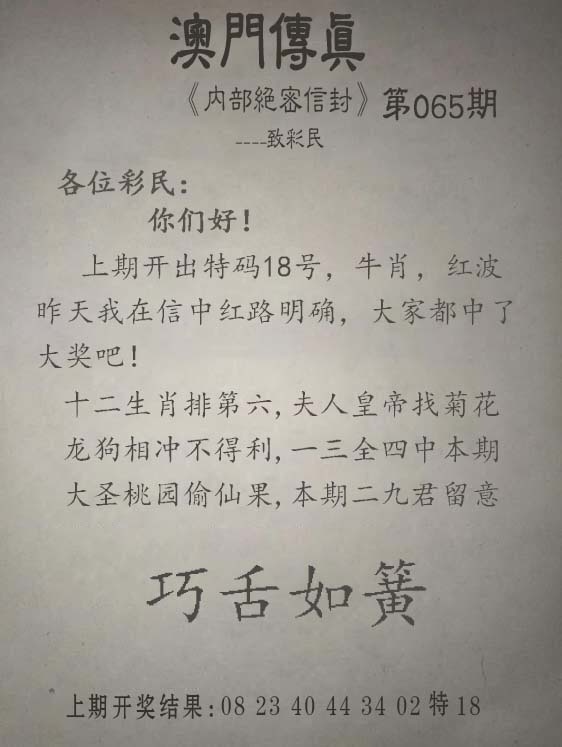 澳門傳眞
《内部絕密信封》第065期
----致彩民
各位彩民：
你们好！
上期开出特码18号，牛肖，红波
昨天我在信中红路明确，大家都中了
大奖吧！
十二生肖排第六,夫人皇帝找菊花
龙狗相冲不得利,一三全四中本期
大圣桃园偷仙果,本期二九君留意
巧舌如簧
上期开奖结果:08 23 40 44 34 02特18